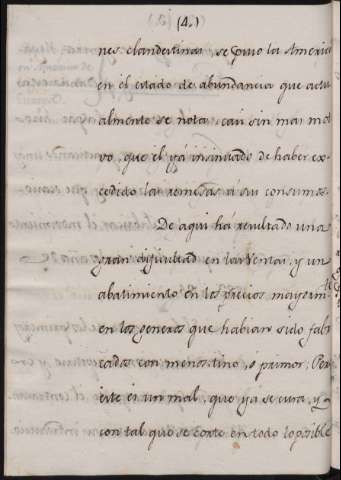 (4.)
nes clandestinas, se puso la America
en el estado de abundancia que actu
almente se nota, casi sin mas moti
vo, que el yá insinuado de haber ex-
cedido las remesas á su consumo.
De aqui há resultado una
gran dificultad en las Ventas, y un
abatimiento en los precios mayormte
en los generos que habian sido fabri
cados con menos tino, ó primor. Pero
este es un mal, que ya se cura, y
con tal que se corte en todo lo posible